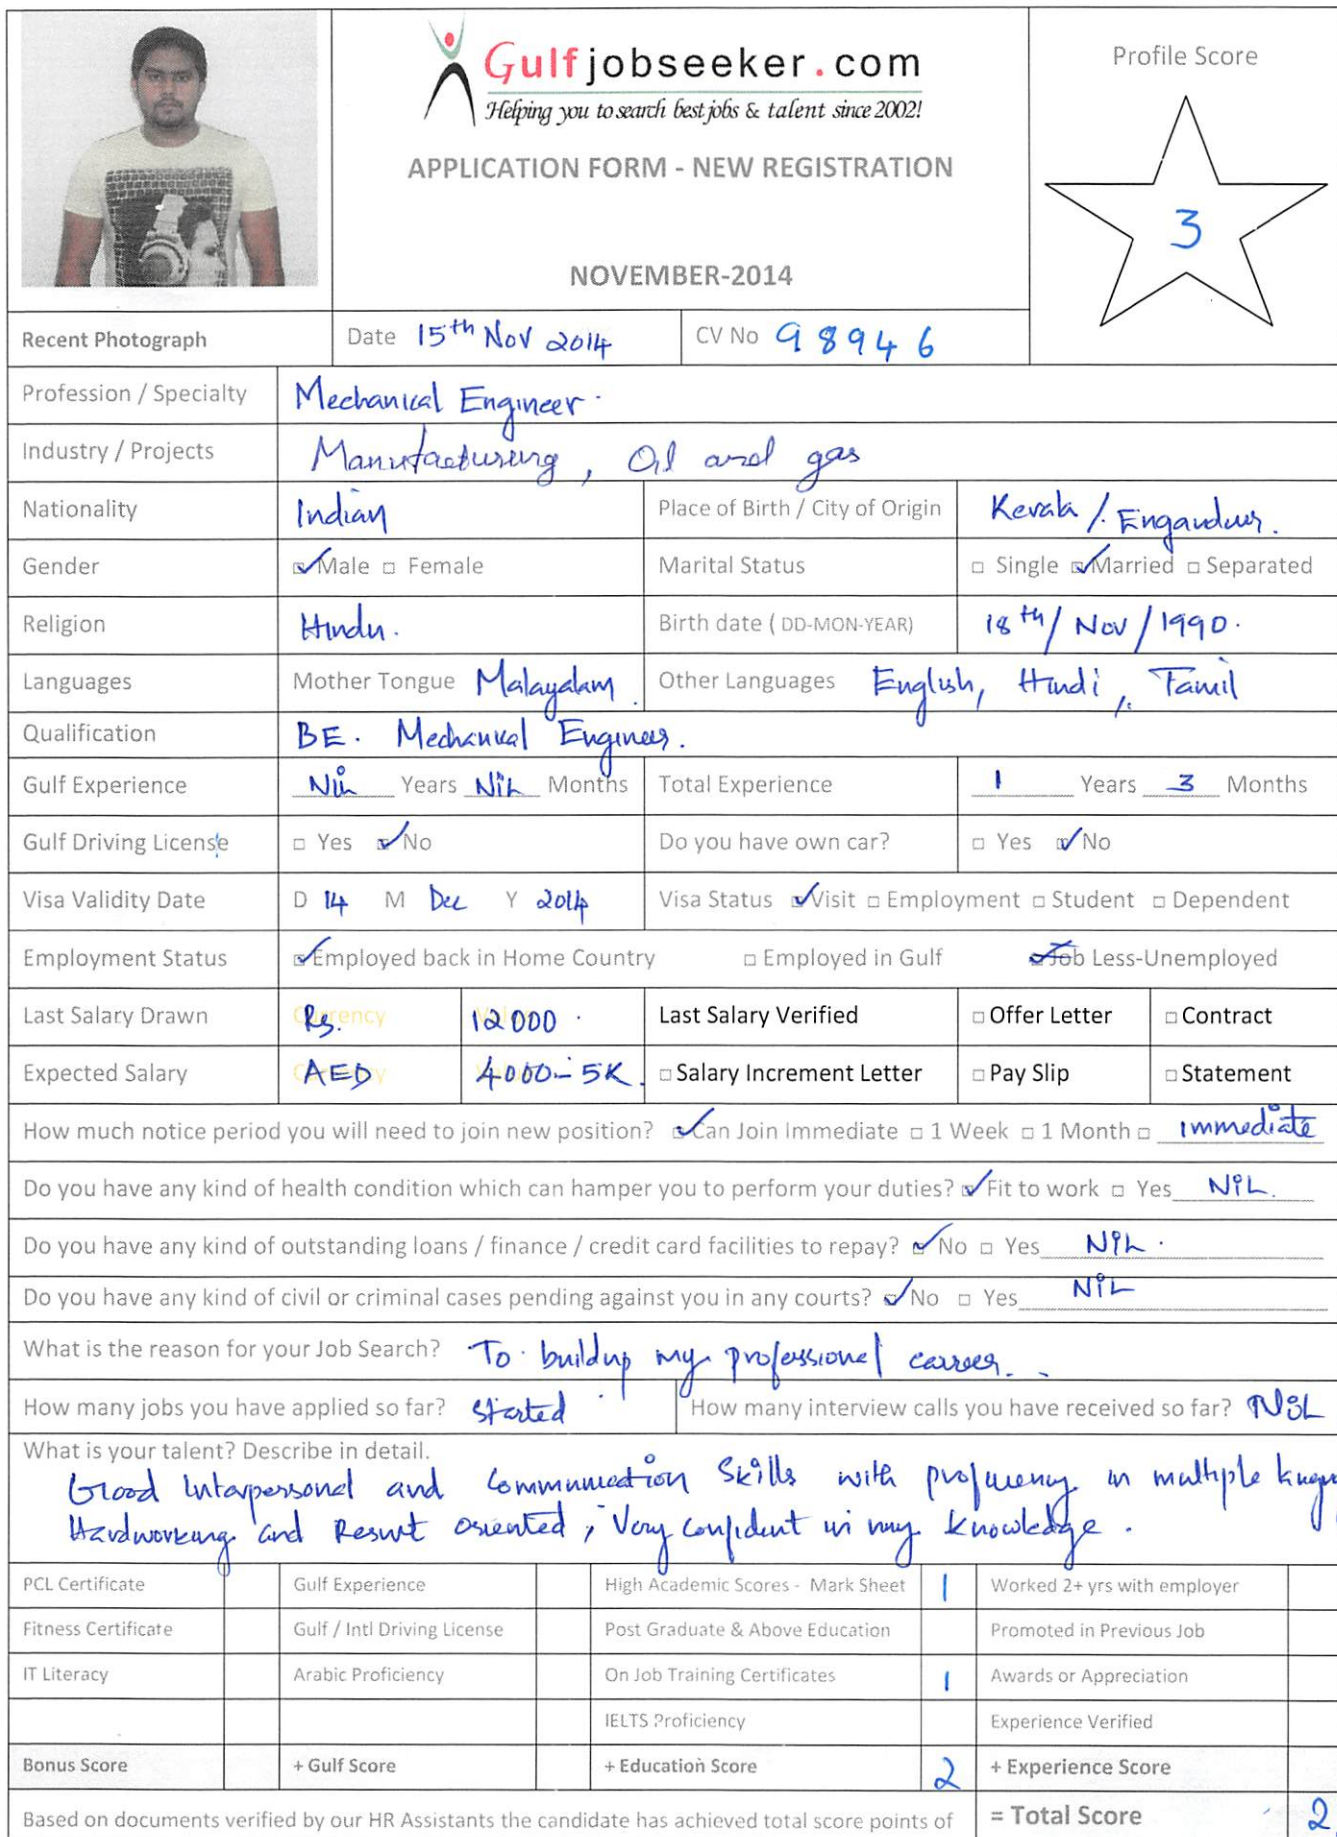 Gulfjobseeker.com
Helping you to search best jobs & talent since 2002!
APPLICATION FORM - NEW REGISTRATION
NOVEMBER-2014
Profile Score
3
Recent Photograph
Date 15th Nov 2014
CV No 98946
Profession / Specialty Mechanical Engineer.
Industry / Projects Manufacturing, Oil and gas
Nationality Indian Place of Birth / City of Origin Kerala /. Engandiur.
Gender ☑ Male □ Female Marital Status □ Single ☑ Married □ Separated
Religion Hindu. Birth date ( DD-MON-YEAR) 18th/ Nov / 1990.
Languages Mother Tongue Malayalam. Other Languages English, Hindi, Tamil
Qualification BE. Mechanical Engineer.
Gulf Experience Nil Years NiL Months Total Experience 1 Years 3 Months
Gulf Driving License □ Yes ☑ No Do you have own car? □ Yes ☑ No
Visa Validity Date D 14 M Dec Y 2014 Visa Status ☑ Visit □ Employment □ Student □ Dependent
Employment Status ☑ Employed back in Home Country □ Employed in Gulf ☑ Job Less-Unemployed
Last Salary Drawn Currency Rs. 12000. Last Salary Verified □ Offer Letter □ Contract
Expected Salary AED 4000-5K. □ Salary Increment Letter □ Pay Slip □ Statement
How much notice period you will need to join new position? ☑ Can Join Immediate □ 1 Week □ 1 Month □ immediate
Do you have any kind of health condition which can hamper you to perform your duties? ☑ Fit to work □ Yes NiL.
Do you have any kind of outstanding loans / finance / credit card facilities to repay? ☑ No □ Yes NiL.
Do you have any kind of civil or criminal cases pending against you in any courts? ☑ No □ Yes NiL
What is the reason for your Job Search? To buildup my professional carreer.
How many jobs you have applied so far? started How many interview calls you have received so far? NiL
What is your talent? Describe in detail.
Good Interpersonal and Communication Skills with proficiency in multiple
Hardworking and Result oriented, Very confident in my knowledge.
PCL Certificate Gulf Experience High Academic Scores - Mark Sheet 1 Worked 2+ yrs with employer
Fitness Certificate Gulf / Intl Driving License Post Graduate & Above Education Promoted in Previous Job
IT Literacy Arabic Proficiency On Job Training Certificates 1 Awards or Appreciation
IELTS Proficiency Experience Verified
Bonus Score + Gulf Score + Education Score 2 + Experience Score
Based on documents verified by our HR Assistants the candidate has achieved total score points of = Total Score 2